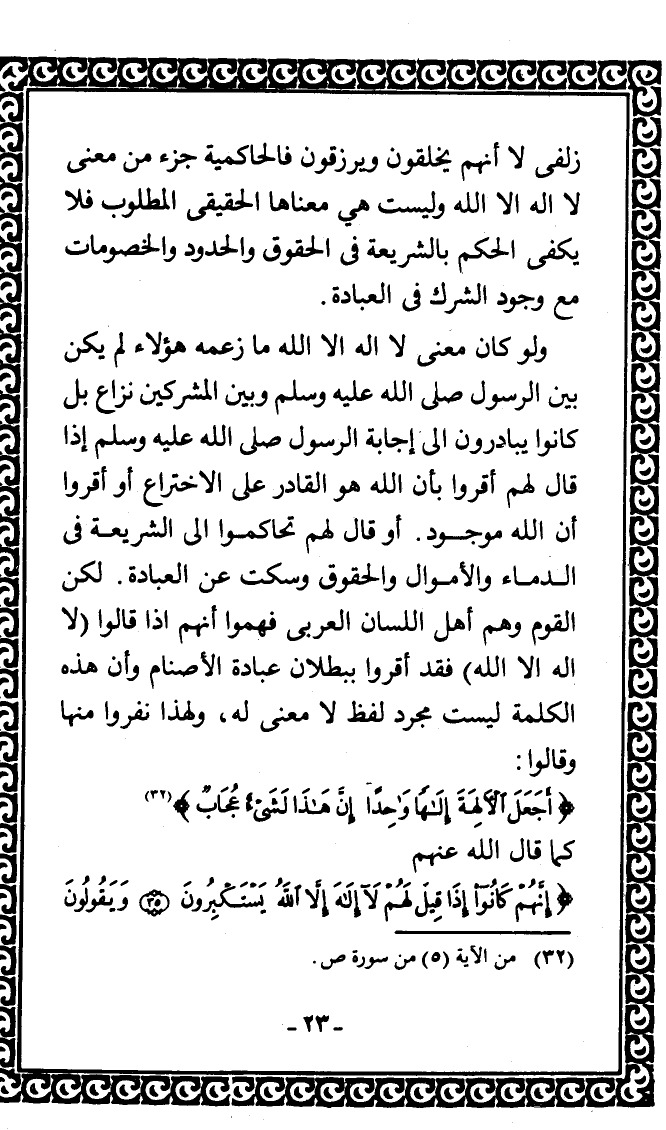 زلفى لا أنهم يخلقون ويرزقون فالحاكمية جزء من معنى
لا اله الا الله وليست هي معناها الحقيقى المطلوب فلا
يكفى الحكم بالشريعة فى الحقوق والحدود والخصومات
مع وجود الشرك فى العبادة .
ولو كان معنى لا اله الا الله ما زعمه هؤلاء لم يكن
بين الرسول صلى الله عليه وسلم وبين المشركين نزاع بل
كانوا يبادرون الى إجابة الرسول صلى الله عليه وسلم إذا
قال لهم أقروا بأن الله هو القادر على الاختراع أو أقروا
أن الله موجــود . أو قال لهم تحاكمــوا الى الشريعــة فى
الــدمــاء والأمــوال والحقوق وسكت عن العبادة . لكن
القوم وهم أهل اللسان العربى فهموا أنهم اذا قالوا (لا
اله الا الله) فقد أقروا ببطلان عبادة الأصنام وأن هذه
الكلمة ليست مجرد لفظ لا معنى له ، ولهذا نفروا منها
وقالوا :
﴿ أَجَعَلَ ٱلْآلِهَةَ إِلَـٰهًا وَٰحِدًا إِنَّ هَـٰذَا لَشَىْءٌ عُجَابٌ ﴾(٣٢)
كما قال الله عنهم
﴿ إِنَّهُمْ كَانُوٓا۟ إِذَا قِيلَ لَهُمْ لَآ إِلَـٰهَ إِلَّا ٱللَّهُ يَسْتَكْبِرُونَ ۝٣٥ وَيَقُولُونَ
(٣٢) من الآية (٥) من سورة ص .
- ٢٣ -